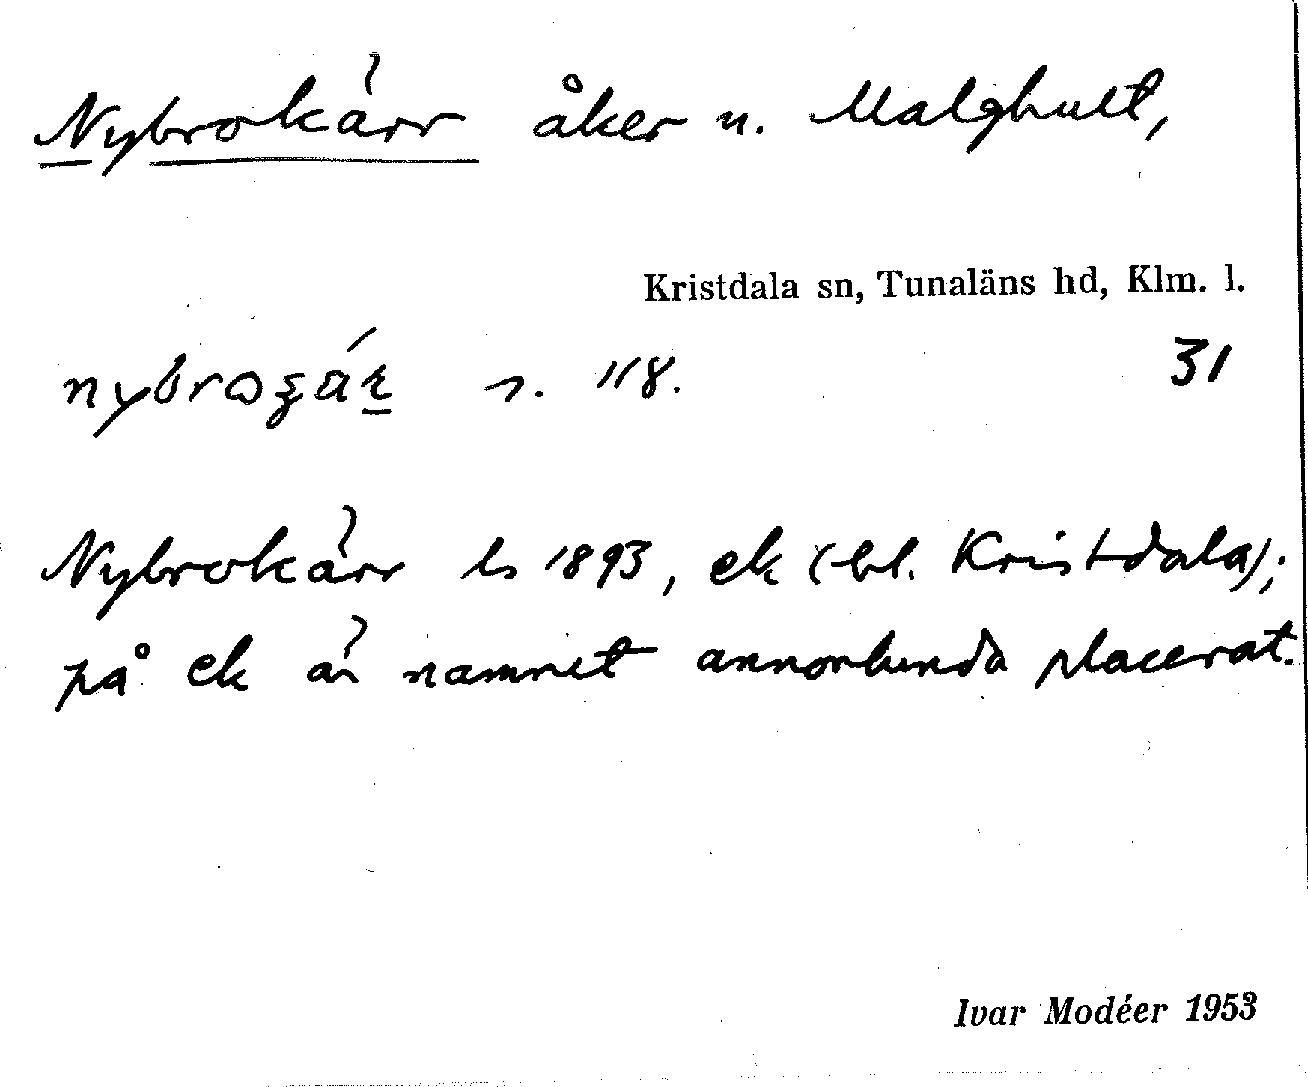 Nybrokärr åker n. Malghult,
Kristdala sn, Tunaläns hd, Klm. l.
s. 118. 31
Nybrokärr ls 1893, ek (bl. Kristdala);
på ek är namnet annorlunda placerat.
Ivar Modéer 1953